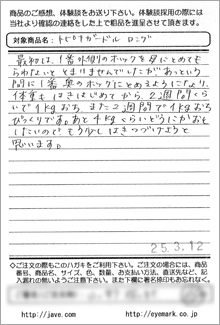 商品のご感想、体験談をお送り下さい。体験談採用の際には
当社より確認の連絡をした上で粗品を進呈させて頂きます。
対象商品名: トビキリガードル ロング
最初は、1番外側のホックを母にとめても
らわないととまりませんでしたがあっという
間に1番奥のホックにとめるようになり、
体重もはきはじめてから、2週間くら
いで1kgおち、また2週間で1kgおち
びっくりです。あと4kgくらいどうにかおと
したいので、もう少しはきつづけようと
思います。
25.3.12
◇ご注文の際もこのハガキをご利用下さい。ご注文の場合には、商品
番号、商品名、サイズ、色、数量、お支払い方法、直送先など、記
入漏れの無いようご注意下さい。また下欄に署名捺印もお忘れなく。
http://jave.com http://eyemark.co.jp